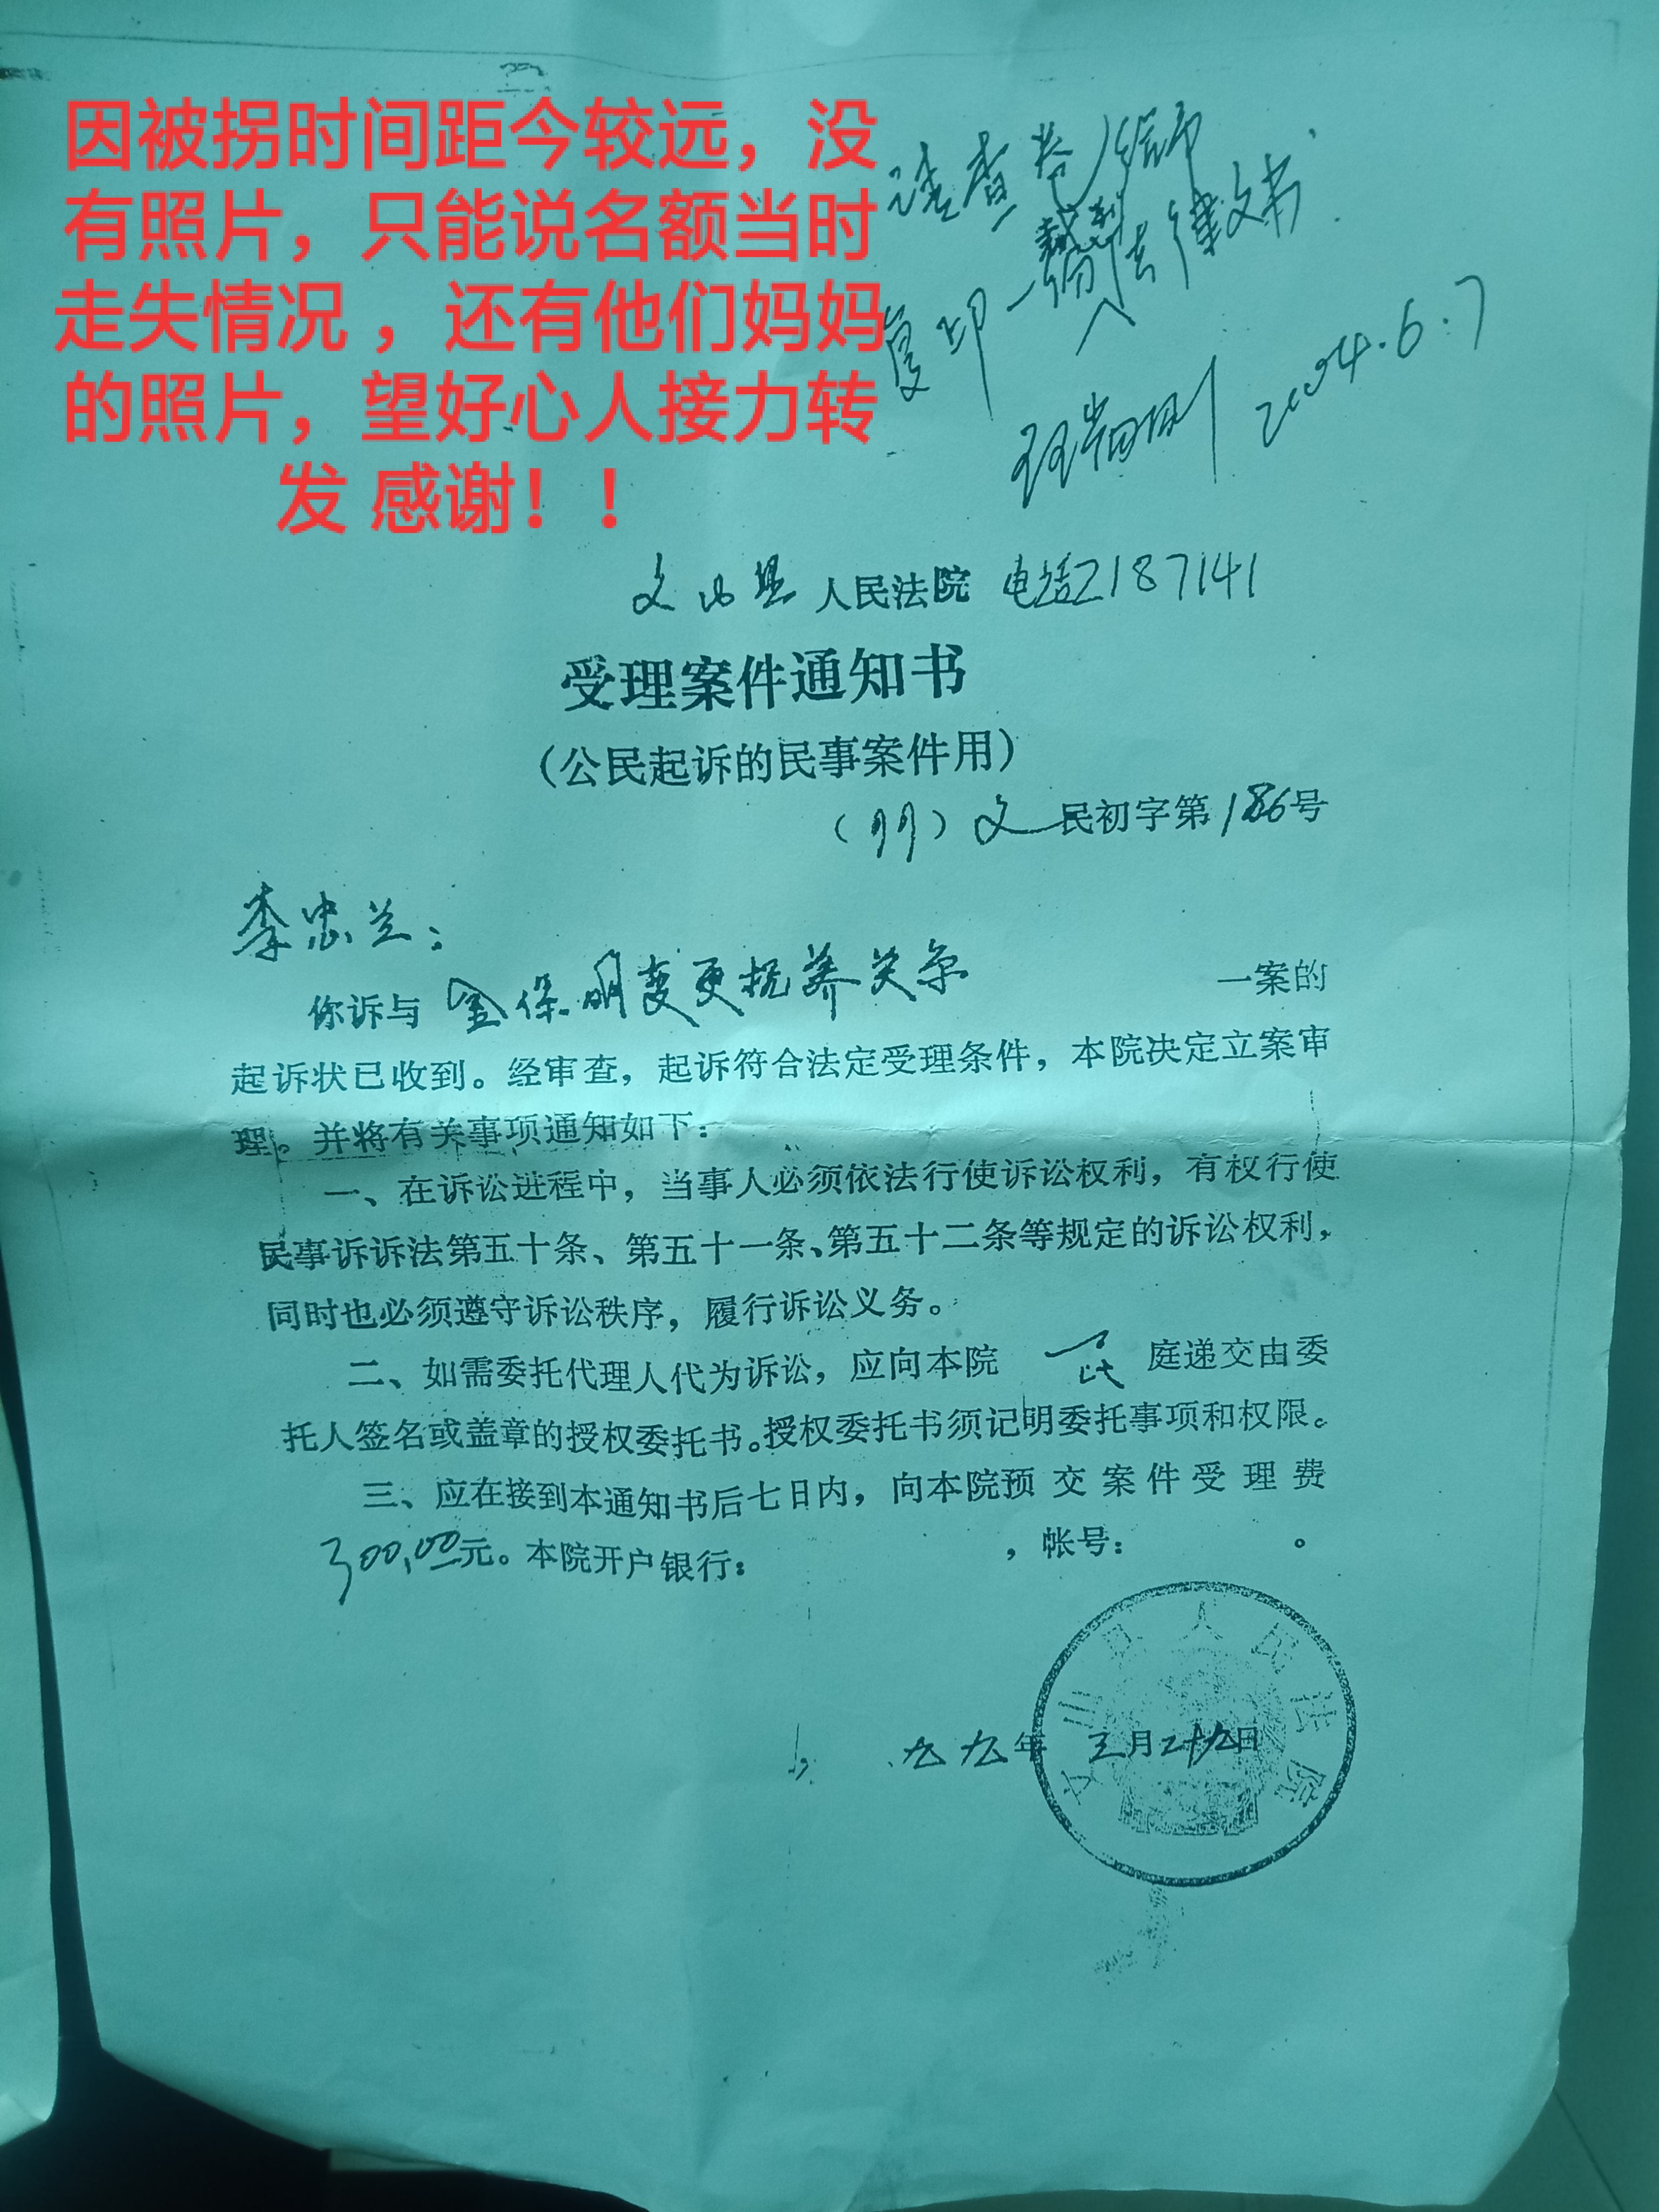 因被拐时间距今较远，没
有照片，只能说名额当时
走失情况 ，还有他们妈妈
的照片，望好心人接力转
发 感谢！！
请查卷
复印一份法律文书.
2004.6.7
文山县人民法院 电话2187141
受理案件通知书
（公民起诉的民事案件用）
（99）文民初字第186号
李忠兰：
你诉与 金保明变更抚养关系 一案的
起诉状已收到。经审查，起诉符合法定受理条件，本院决定立案审
理。并将有关事项通知如下：
一、在诉讼进程中，当事人必须依法行使诉讼权利，有权行使
民事诉诉法第五十条、第五十一条、第五十二条等规定的诉讼权利，
同时也必须遵守诉讼秩序，履行诉讼义务。
二、如需委托代理人代为诉讼，应向本院 民 庭递交由委
托人签名或盖章的授权委托书。授权委托书须记明委托事项和权限。
三、应在接到本通知书后七日内，向本院预交案件受理费
300.00元。本院开户银行： ，帐号： 。
文山县人民法院
九九年 三月二十九日